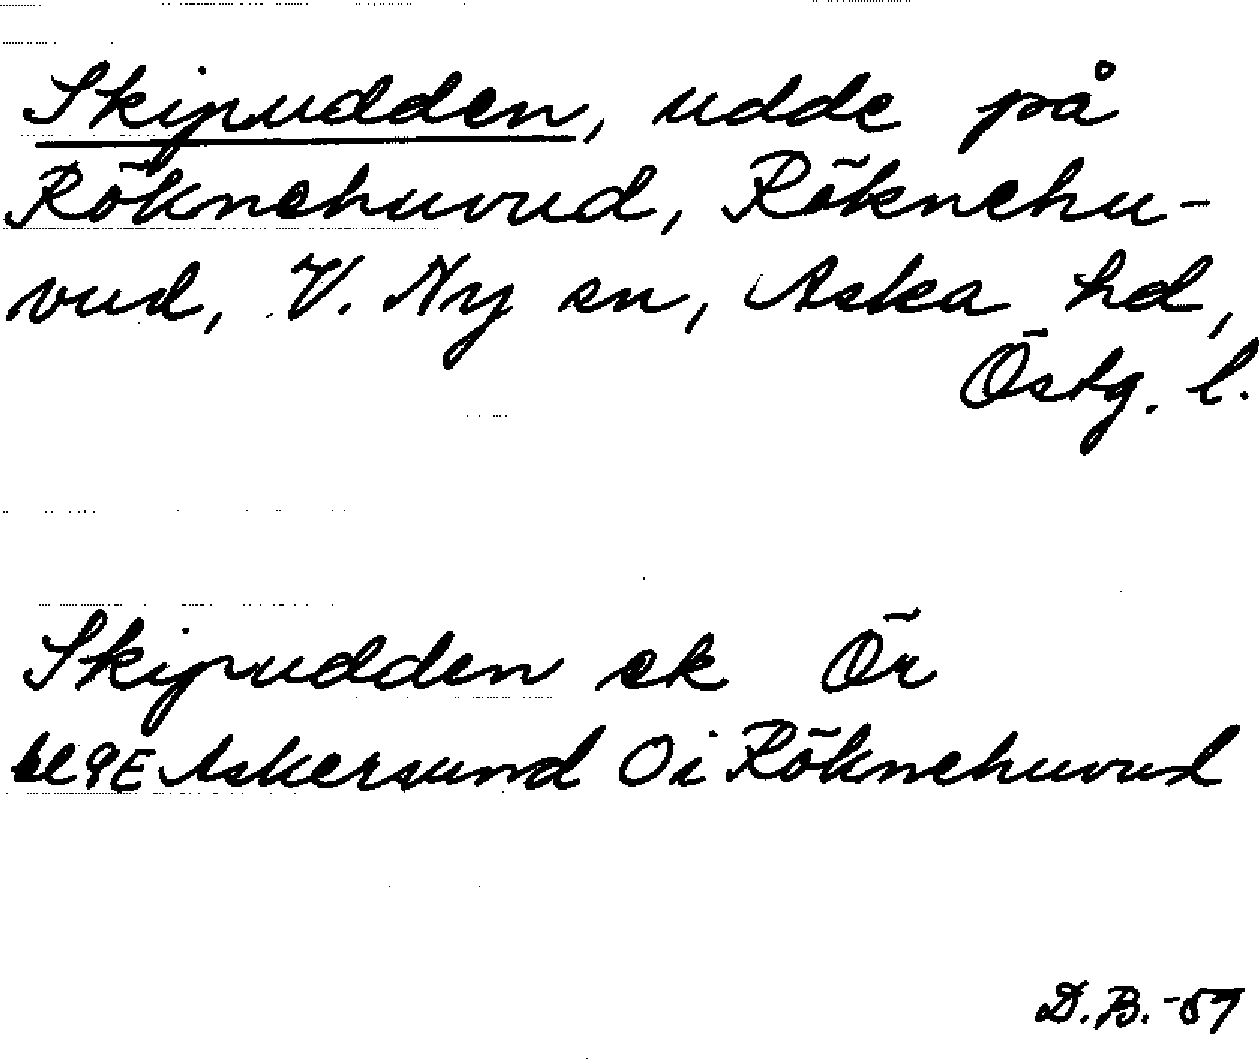 Skipudden, udde på
Röknehuvud, Röknehu-
vud, V. Ny sn, Aska hd,
Östg. l.
Skipudden ek Ör
bl 9E Askersund Oi Röknehuvud
D.B. -57